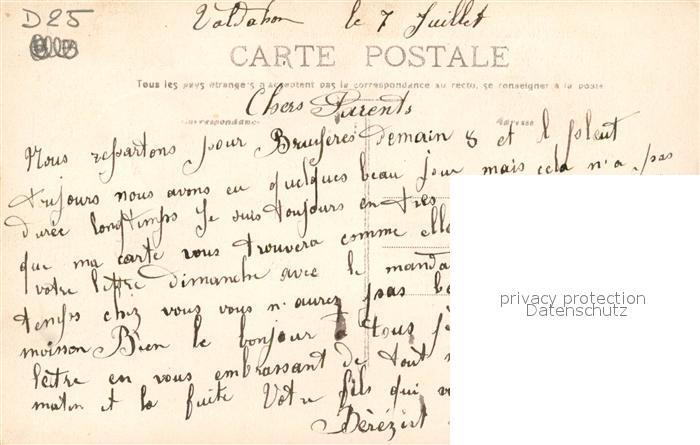 D25
Valdahon le 7 Juillet
CARTE POSTALE
Tous les pays étrangers n'acceptent pas la correspondance au recto, se renseigner à la poste
Chers Parents
Correspondance Adresse
Nous repartons pour Bruyères demain 8 et il pleut
toujours nous avons eu quelques beau jour mais cela n'a pas
durée longtemps Je suis toujours en très
que ma carte vous trouvera comme elle
votre lettre dimanche avec le manda
temps chez vous vous n'aurez pas be
moisson Bien le bonjour à tous j'é
lettre en vous embrassant de tout
matin et la suite Votre fils qui v
privacy protection
Datenschutz